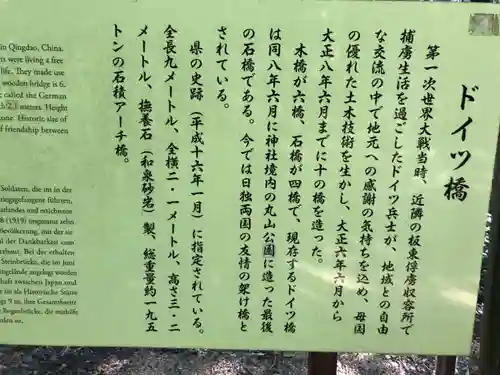 ドイツ橋
第一次世界大戦当時、近隣の板東俘虜収容所で
捕虜生活を過ごしたドイツ兵士が、地域との自由
な交流の中で地元への感謝の気持ちを込め、母国
の優れた土木技術を生かし、大正六年六月から
大正八年六月までに十の橋を造った。
木橋が六橋、石橋が四橋で、現存するドイツ橋
は同八年六月に神社境内の丸山公園に造った最後
の石橋である。今では日独両国の友情の架け橋と
されている。
県の史跡（平成十六年一月）に指定されている。
全長九メートル、全横二・一メートル、高さ三・二
メートル、撫養石（和泉砂岩）製、総重量約一九五
トンの石積アーチ橋。
in Qingdao, China.
rs were living a free
life. They made use
wooden bridge is 6.
called the German
2.1 meters. Height
one. Historic size of
of friendship between
Soldaten, die in der
riegsgefangene führten,
arlandes und möchtens
8 (1919) insgesamt zehn
Bevölkerung, mit der sie
der Dankbarkeit zum
erbaut. Bei der erhalten
Steinbrücke, die im Juni
ingelände angelegt worden
haft zwischen Japan und
e ist als Historische Stätte
9 m, ihre Gesamtbreite
Bogenbrücke, die mithilfe
rden ist.